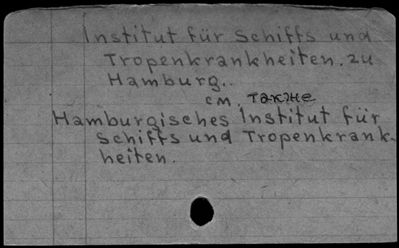 Institut für Schiffs und
Tropenkrankheiten. zu
Hamburg..
см. также
Hamburgisches Institut für
Schiffs und Tropenkrank-
heiten.